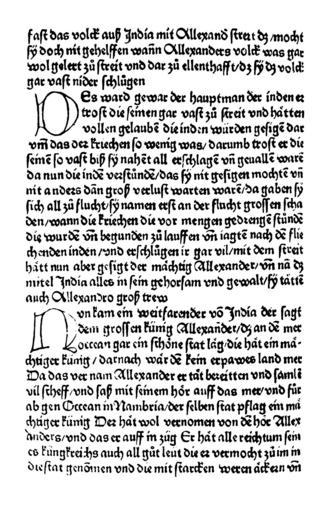 fast das volck auß India mit Allexand streit dʒ/mocht
sÿ doch nit gehelffen wañ Allexanders volck was gar
wol gelert zů streit vnd dar zů ellenthafft/dʒ sÿ dʒ volck
gar vast nider schlůgen
Des ward gewar der hauptman der inden er
trost die seinen gar vast zů streit vnd hætten
vollen gelaubē die inden wůrden gesigē dar
vm̃ das der kriechen so wenig was/darumb trost er die
seinē so vast biß sÿ nahēt all erschlagē vñ geuallē warē
da nun die indē verstůndē/das sÿ nit gesigen mochtē vñ
nit anders dañ groß verlust warten warē/da gaben sÿ
sich all zů flucht/sÿ namen erst an der flucht grossen scha
den/wann die kriechen die vor mengen gedrengē stůndē
die wurdē vñ begunden zů lauffen vñ iagtē nach dē flie
chenden inden/vnd erschlůgen ir gar vil/mit dem streit
hátt nun aber gesigt der mächtig Allexander/vñ nā dʒ
mitel India alles in sein gehorsam vnd gewalt/sÿ tätē
auch Allexandro groß trew
Nun kam ein weitfarender võ India der sagt
dem grossen künig Allexander/dʒ an dē mer
occean gar ein schöne stat läg/die hät ein mä-
chtiger künig/darnach wär dē kein erpawes land mer
Da das ver nam Allexander er tät bereitten vnd samlē
vil scheff/vnd saß mit seinem hör auff das mer/vnd fůr
ab gen Occean in Nambria/der selben stat pflag ein mä
chtiger künig Der hät wol vernomen von dē hör Allex
anders/vnd das er auff in zúg Er hät alle reichtum sein
es küngkreichs auch all gůt leut die er vermocht zů im in
die stat genōmen vnd die mit starcken weren äckern vñ